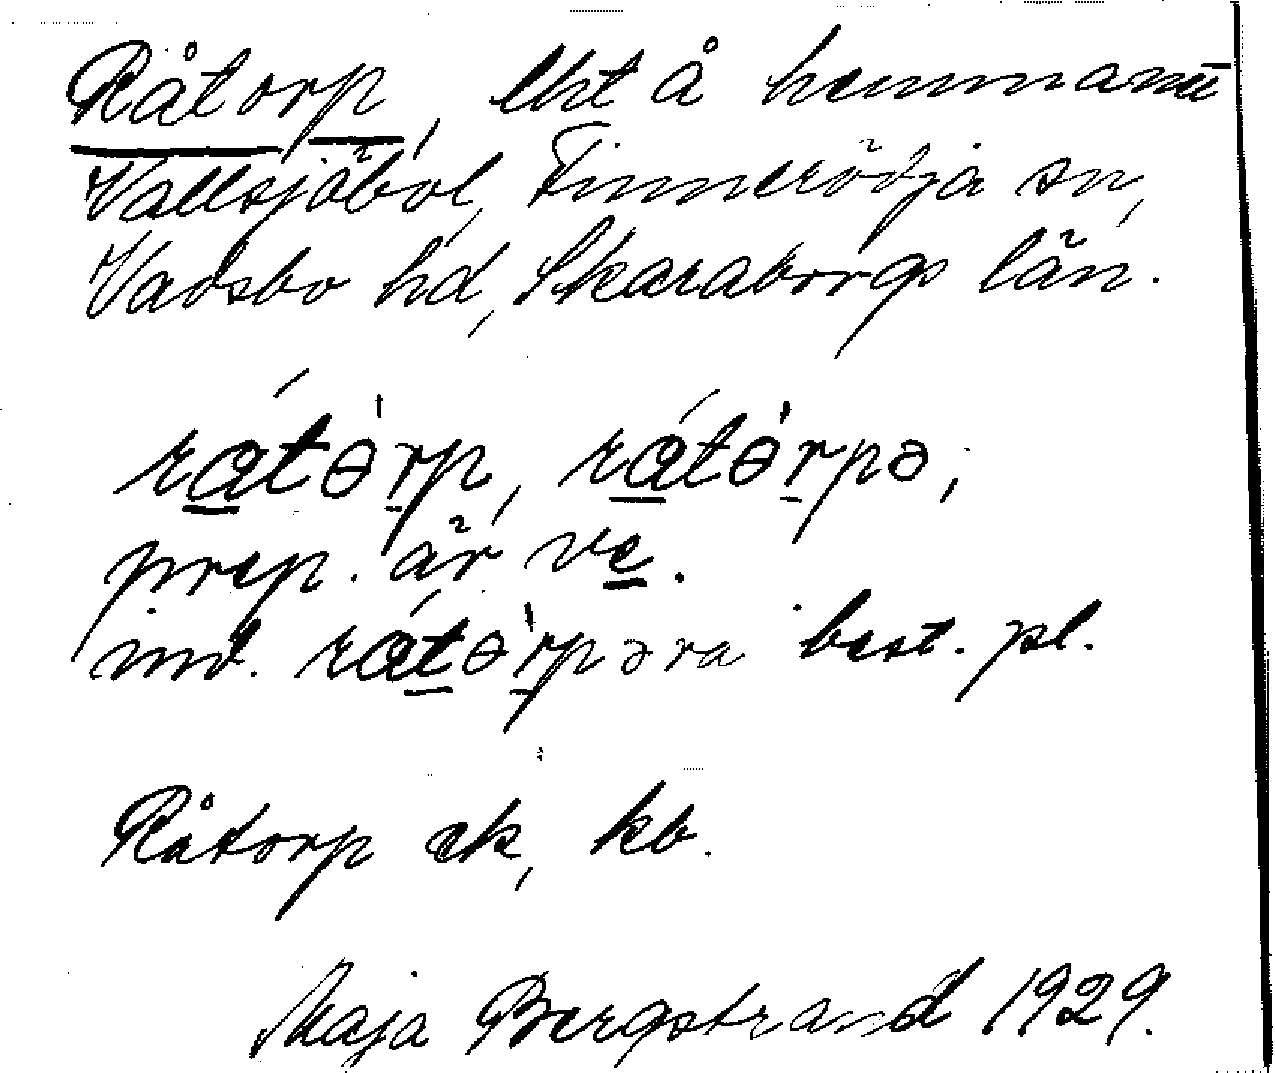 Råtorp, lht å hemmanet
Vallsjöbol, Finnerödja sn,
Vadsbo hd, Skaraborgs län.
rátɵ̀rp, rátɵ̀rpə;
prep. är ve.
inv. rátɵ̀rpəra best. pl.
Råtorp ek, kb.
Maja Bergstrand 1929.